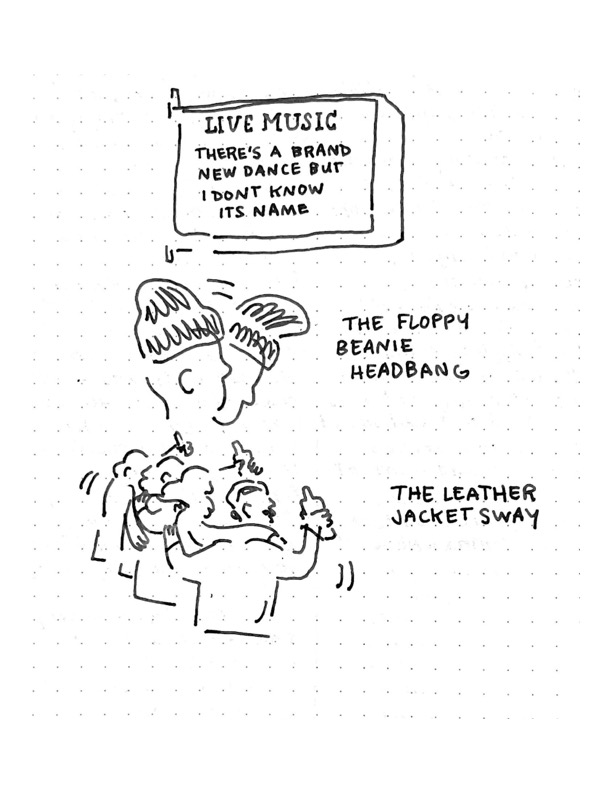 LIVE MUSIC
THERE'S A BRAND
NEW DANCE BUT
I DONT KNOW
ITS NAME
THE FLOPPY
BEANIE
HEADBANG
THE LEATHER
JACKET SWAY